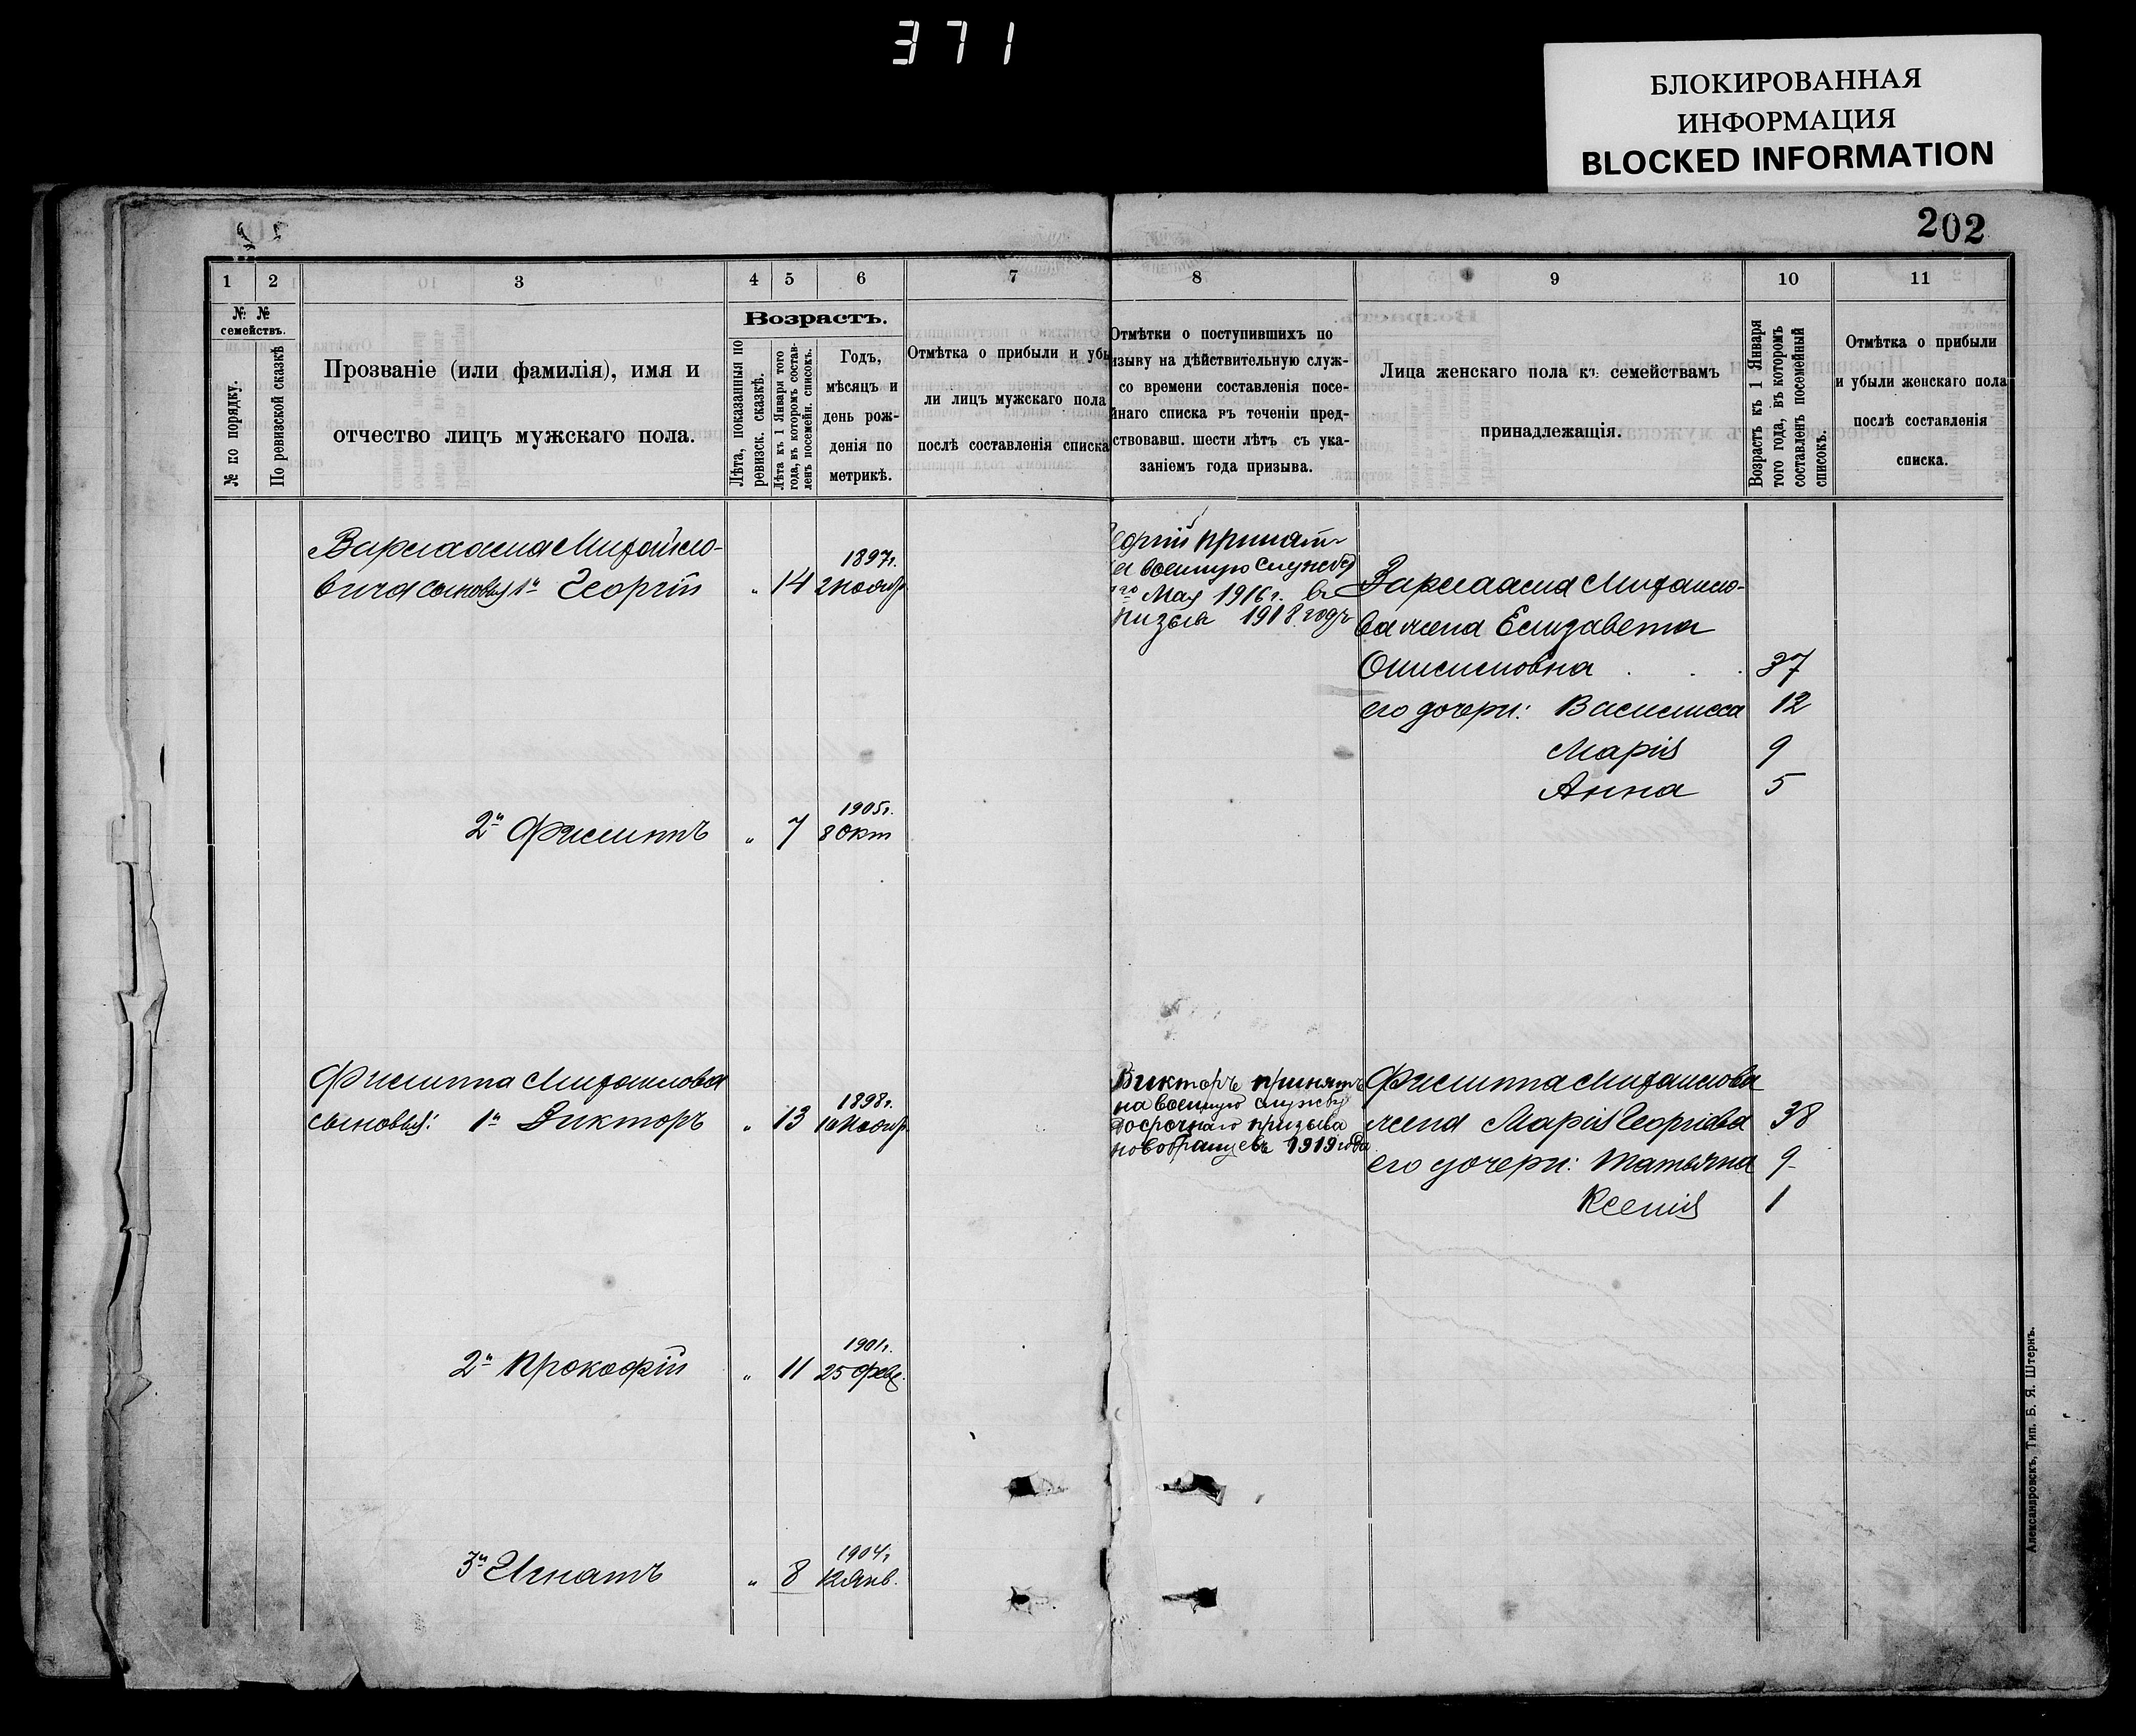 371
БЛОКИРОВАННАЯ
ИНФОРМАЦИЯ
BLOCKED INFORMATION
202
1 2 3 4 5 6 7 8 9 10 11
№ №
семействъ.
№ по порядку.
По ревизской сказкѣ
Прозваніе (или фамилія), имя и
отчество лицъ мужскаго пола.
Возрастъ.
Лѣта, показанныя по
ревизск. сказкѣ.
Лѣта къ 1 Января того
года, въ которомъ состав-
ленъ посемейн. списокъ.
Годъ,
мѣсяцъ и
день рож-
денія по
метрикѣ.
Отмѣтка о прибыли и убы
ли лицъ мужскаго пола
послѣ составленія списка
Отмѣтки о поступившихъ по
изыву на дѣйствительную служ-
со времени составленія посе-
йнаго списка въ теченіи пред-
ствовавш. шести лѣтъ съ ука-
заніемъ года призыва.
Лица женскаго пола къ семействамъ
принадлежащія.
Возрастъ къ 1 Января
того года, въ которомъ
составленъ посемейный
списокъ.
Отмѣтка о прибыли
и убыли женскаго пола
послѣ составленія
списка.
Варлаама Михайло-
вича сыновья 1й Георгій " 14 1897г. 2 Ноябр
еоргій принятъ
а военную службу
Мая 1916г. въ
призывъ 1918 годъ
Варлаама Михаило-
ва жена Елизавета
37
его дочери: Василисса 12
Марія 9
Анна 5
2й Филиппъ " 7 1905г. 8 Окт
Филиппа Михаилова
сыновья: 1й Викторъ " 13 1898г. Ноябр
Викторъ принятъ
на военную службу
досрочнаго призыва
новобранцевъ 1919 года
Филиппа Михаилова
жена Марія Георгіева 38
его дочери: Татьяна 9
Ксенія 1
2й Прокофій " 11 1901г. 25 Февр.
3й Игнатъ " 8 1904г. 12 Янв.
Александровскъ, Тип. Б. Я. Штернъ.